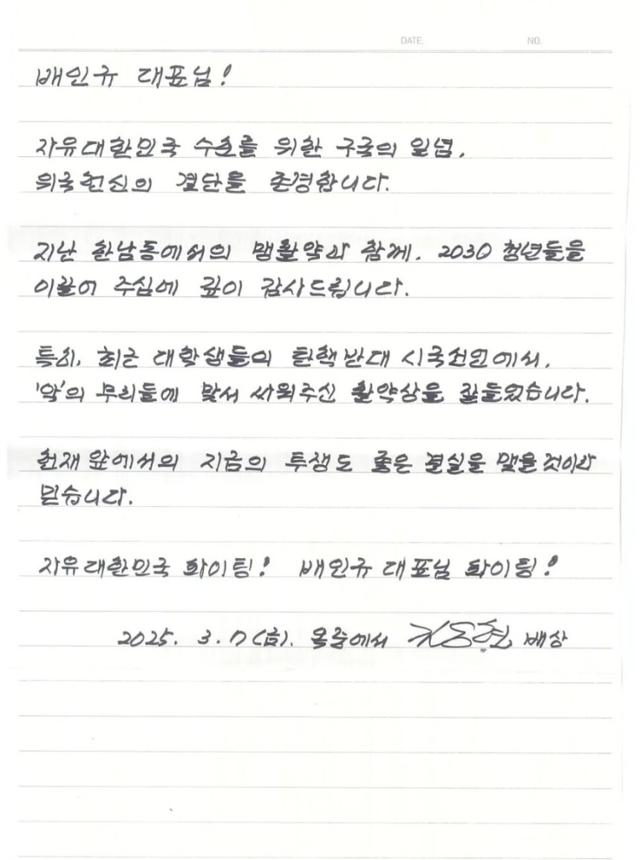 DATE. NO.
배인규 대표님!
자유대한민국 수호를 위한 구국의 일념,
위국헌신의 결단을 존경합니다.
지난 한남동에서의 맹활약과 함께, 2030 청년들을
이끌어 주심에 깊이 감사드립니다.
특히, 최근 대학생들의 탄핵반대 시국선언에서,
'악'의 무리들에 맞서 싸워주신 활약상을 잘들었습니다.
헌재 앞에서의 지금의 투쟁도 좋은 결실을 맺을것이라
믿습니다.
자유대한민국 화이팅! 배인규 대표님 화이팅!
2025. 3. 7(금). 옥중에서 배상